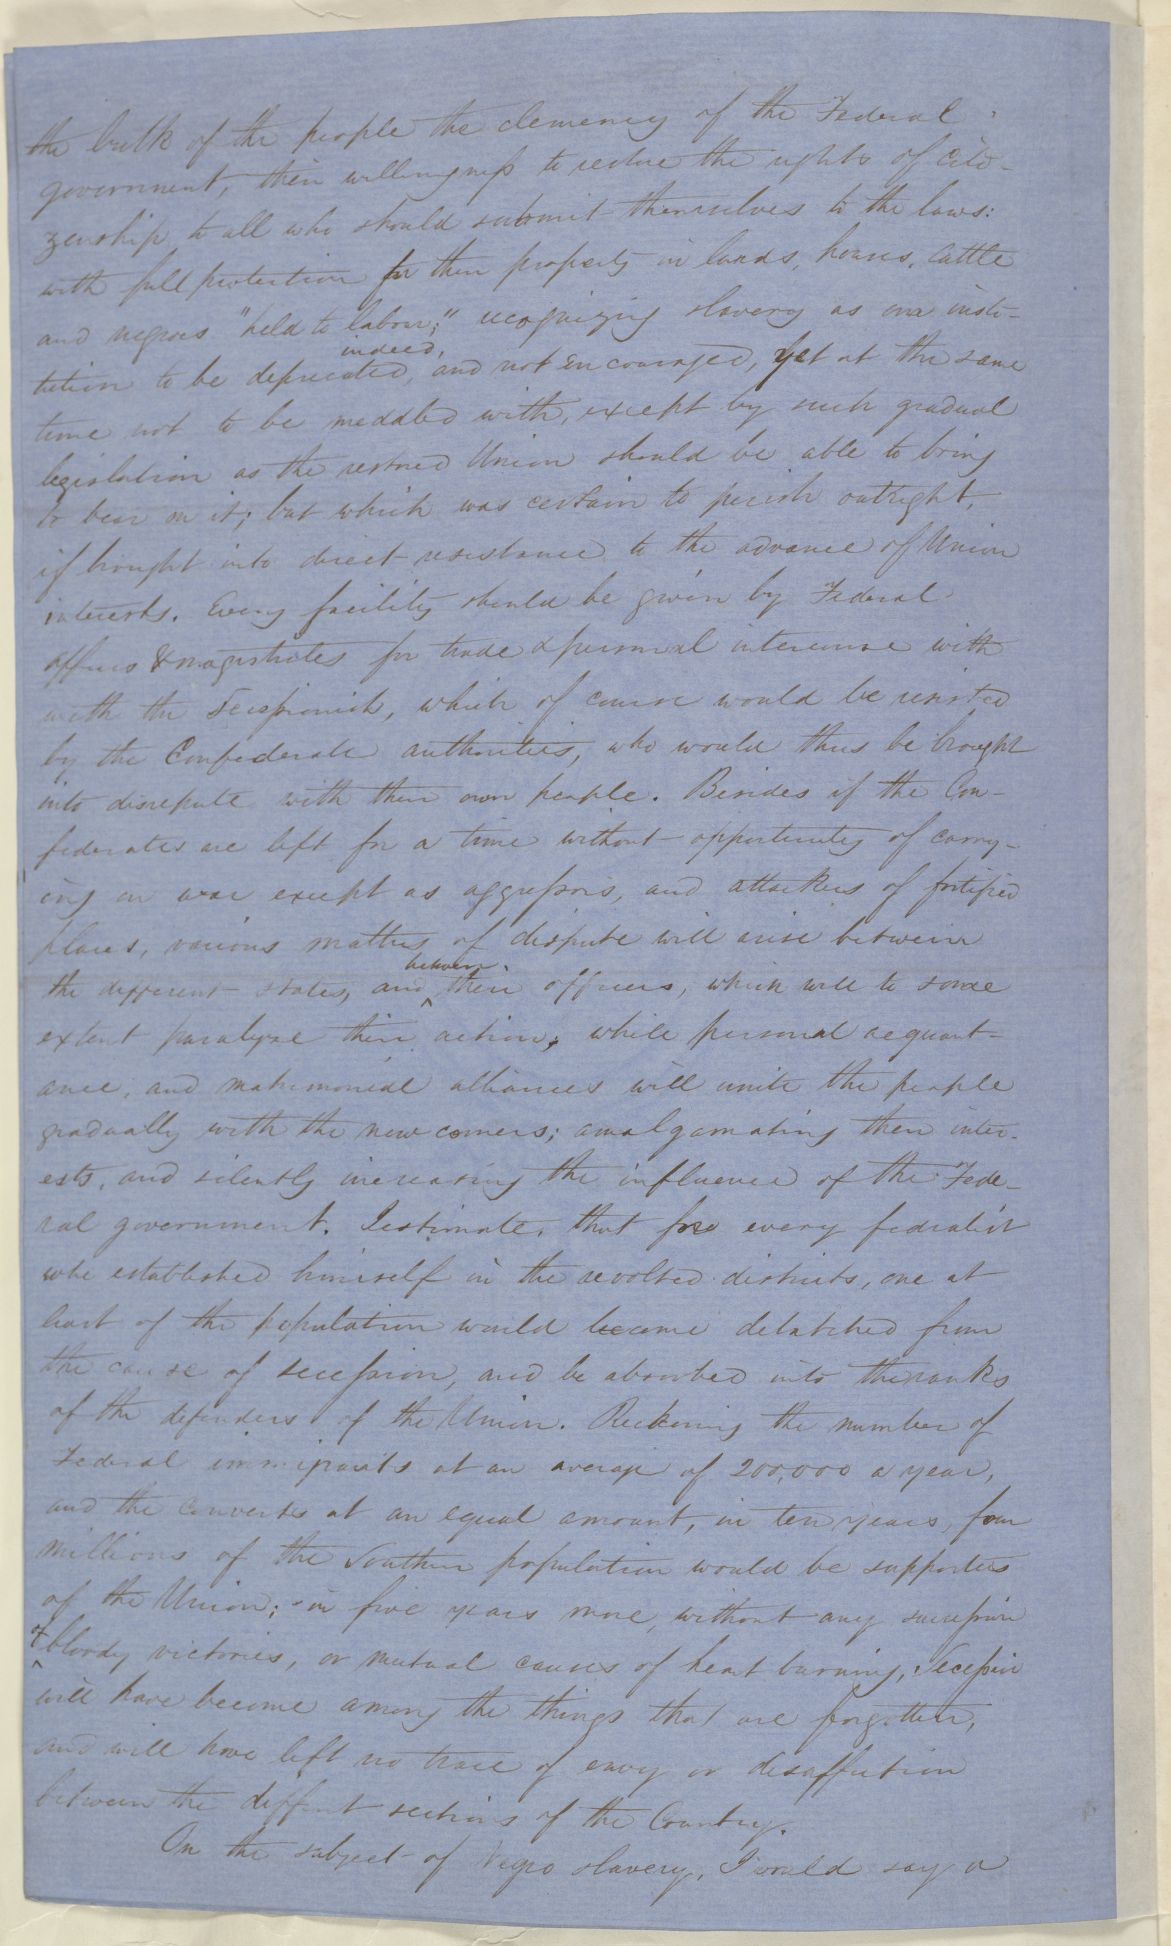 the bulk of the people the clemency of the Federal
government, their willingness to restore the rights of citi-
zenship to all who should submit themselves to the laws:
with full protection for their property in lands, houses, cattle
and negroes "held to labour;" recognizing slavery as an insti-
tution to be deprecated, indeed, and not encouraged, yet at the same
time not to be meddled with, except by such gradual
legislation as the restored Union should be able to bring
to bear on it; but which was certain to perish outright,
if brought into direct resistance to the advance of Union
interests. Every facility should be given by Federal
officers & magistrates for trade & personal intercourse with
with the Secessionists, which of course would be resisted
by the Confederate authorities, who would thus be brought
into disrepute with their own people. Besides if the Con-
federates are left for a time without opportunity of carry-
ing on war except as aggressors, and attackers of fortified
places, various matters of dispute will arise between
the different states, and between their officers, which will to some
extent paralyse their action, while personal acquaint-
ance, and matrimonial alliances will unite the people
gradually with the new comers; amalgamating their inter-
ests, and silently increasing the influence of the Fede-
ral government. I estimate, that for every federalist
who established himself in the revolted districts, one at
least of the population would become detatched from
the cause of secession, and be absorbed into the ranks
of the defenders of the Union. Reckoning the number of
Federal immigrants at an average of 200,000 a year,
and the converts at an equal amount, in ten years, four
millions of the Southern population would be supporters
of the Union; in five years more, without any succession
of bloody victories, or mutual causes of heart burning, Secession
will have become among the things that are forgotten,
and will have left no trace of envy or disaffection
between the diffent sections of the Country.
On the subject of Negro slavery, I would say a